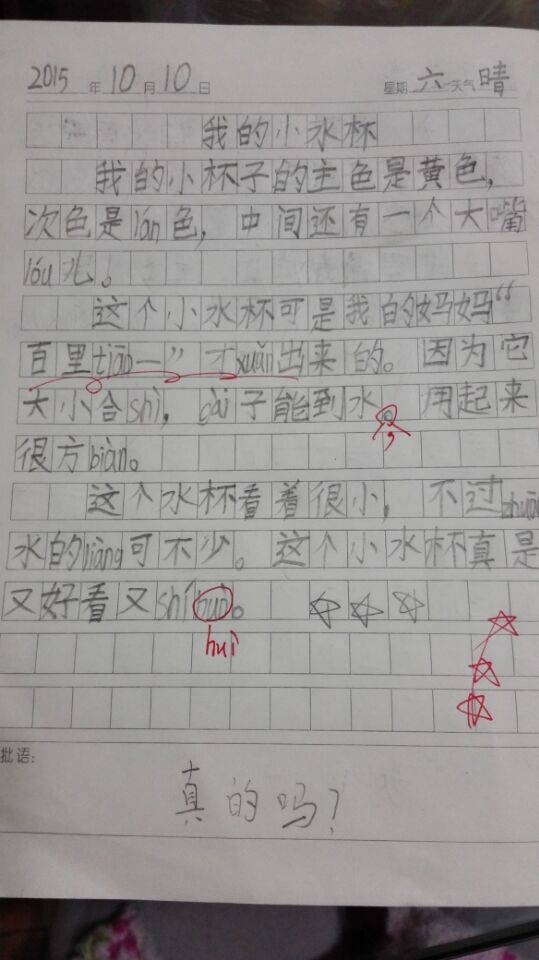 2015年10月10日 星期六天气晴
我的小水杯
我的小杯子的主色是黄色，
次色是lán色，中间还有一个大嘴
lóu儿。
这个小水杯可是我的妈妈“
百里tiāo一”才xuǎn出来的。因为它
大小合shì，gài子能到水。用起来
，
很方biàn。
这个水杯看着很小，不过zhuāng
水的liàng可不少。这个小水杯真是
又好看又shí。
huì
批语：
真的吗？